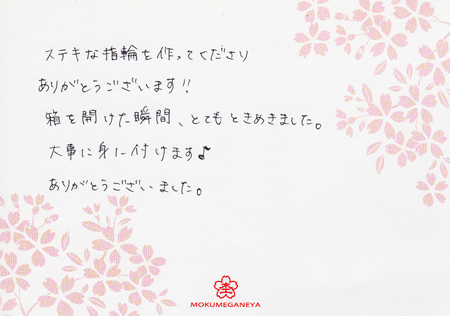 ステキな指輪を作ってくださり
ありがとうございます!!
箱を開けた瞬間、とてもときめきました。
大事に身に付けます♪
ありがとうございました。
MOKUMEGANEYA